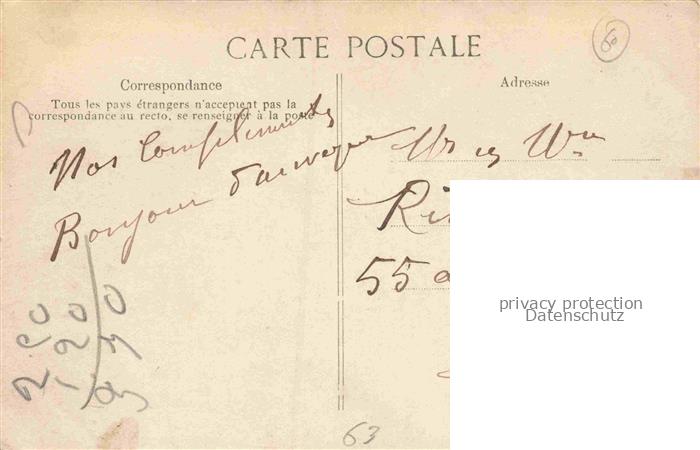 CARTE POSTALE
60
Correspondance
Tous les pays étrangers n'acceptent pas la
correspondance au recto, se renseigner à la poste
Nos Compliments
Bonjour d'auvergne
Adresse
Mr
Ri
55 a
privacy protection
Datenschutz
63